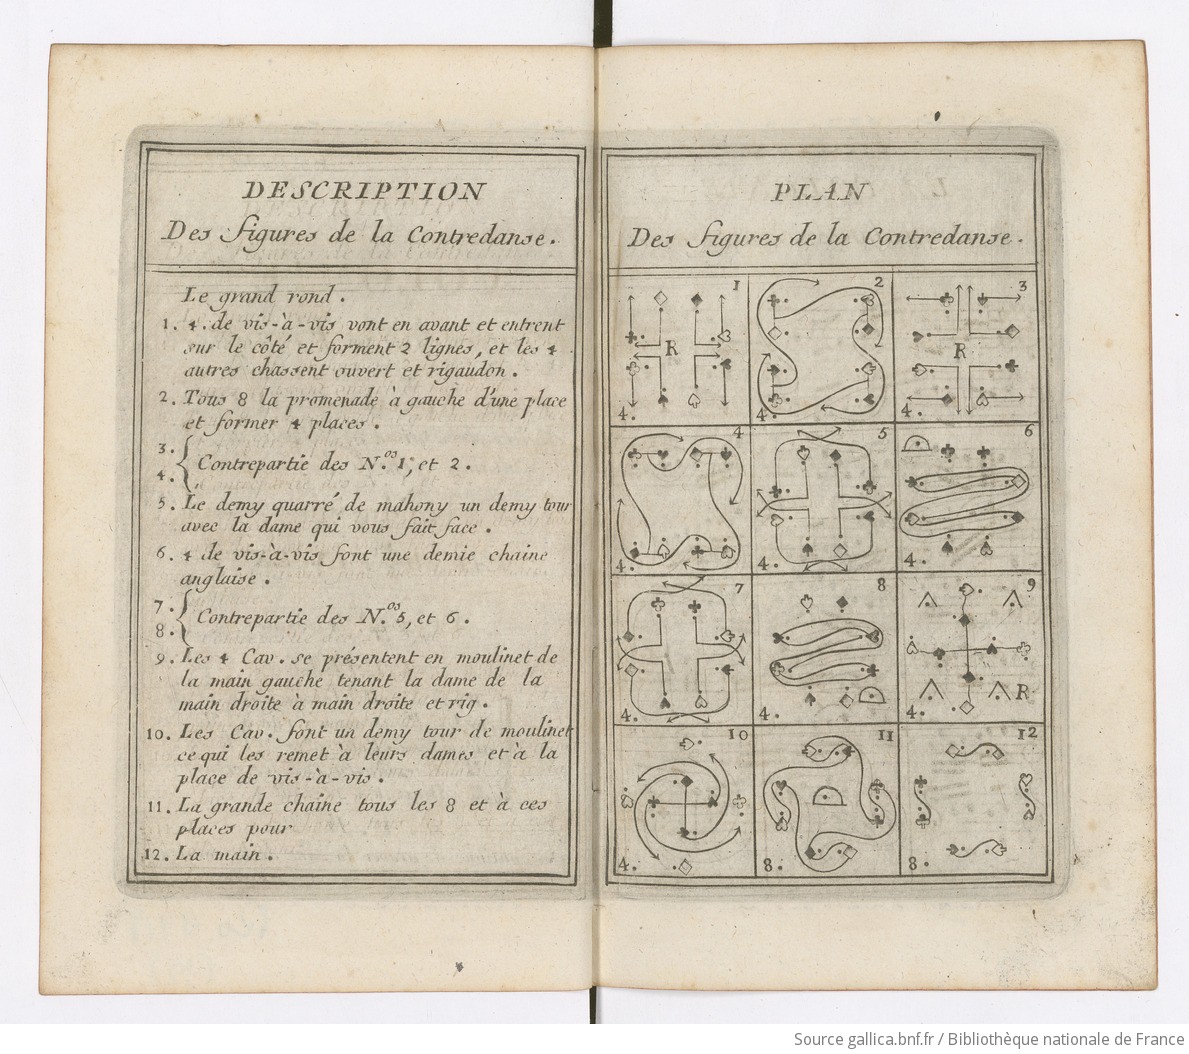 DESCRIPTION
Des figures de la Contredanse.
Le grand rond.
1. 4. de vis-à-vis vont en avant et entrent
sur le côté et forment 2 lignes, et les 4
autres chassent ouvert et rigaudon.
2. Tous 8 la promenade à gauche d'une place
et former 4 places.
3.
4. { Contrepartie des N.os 1, et 2.
5. Le demy quarré de mahony un demy tour
avec la dame qui vous fait face.
6. 4 de vis-à-vis font une demie chaine
anglaise.
7.
8. { Contrepartie des N.os 5, et 6.
9. Les 4 Cav. se présentent en moulinet de
la main gauche tenant la dame de la
main droite à main droite et rig.
10. Les Cav. font un demy tour de moulinet
ce qui les remet à leurs dames et à la
place de vis-à-vis.
11. La grande chaîne tous les 8 et à ces
places pour
12. La main.
PLAN
Des figures de la Contredanse.
1
R
4.
2
4.
3
R
4.
4
4.
5
4.
6
4.
7
4.
8
4.
9
R
4.
10
4.
11
8.
12
8.
Source gallica.bnf.fr / Bibliothèque nationale de France